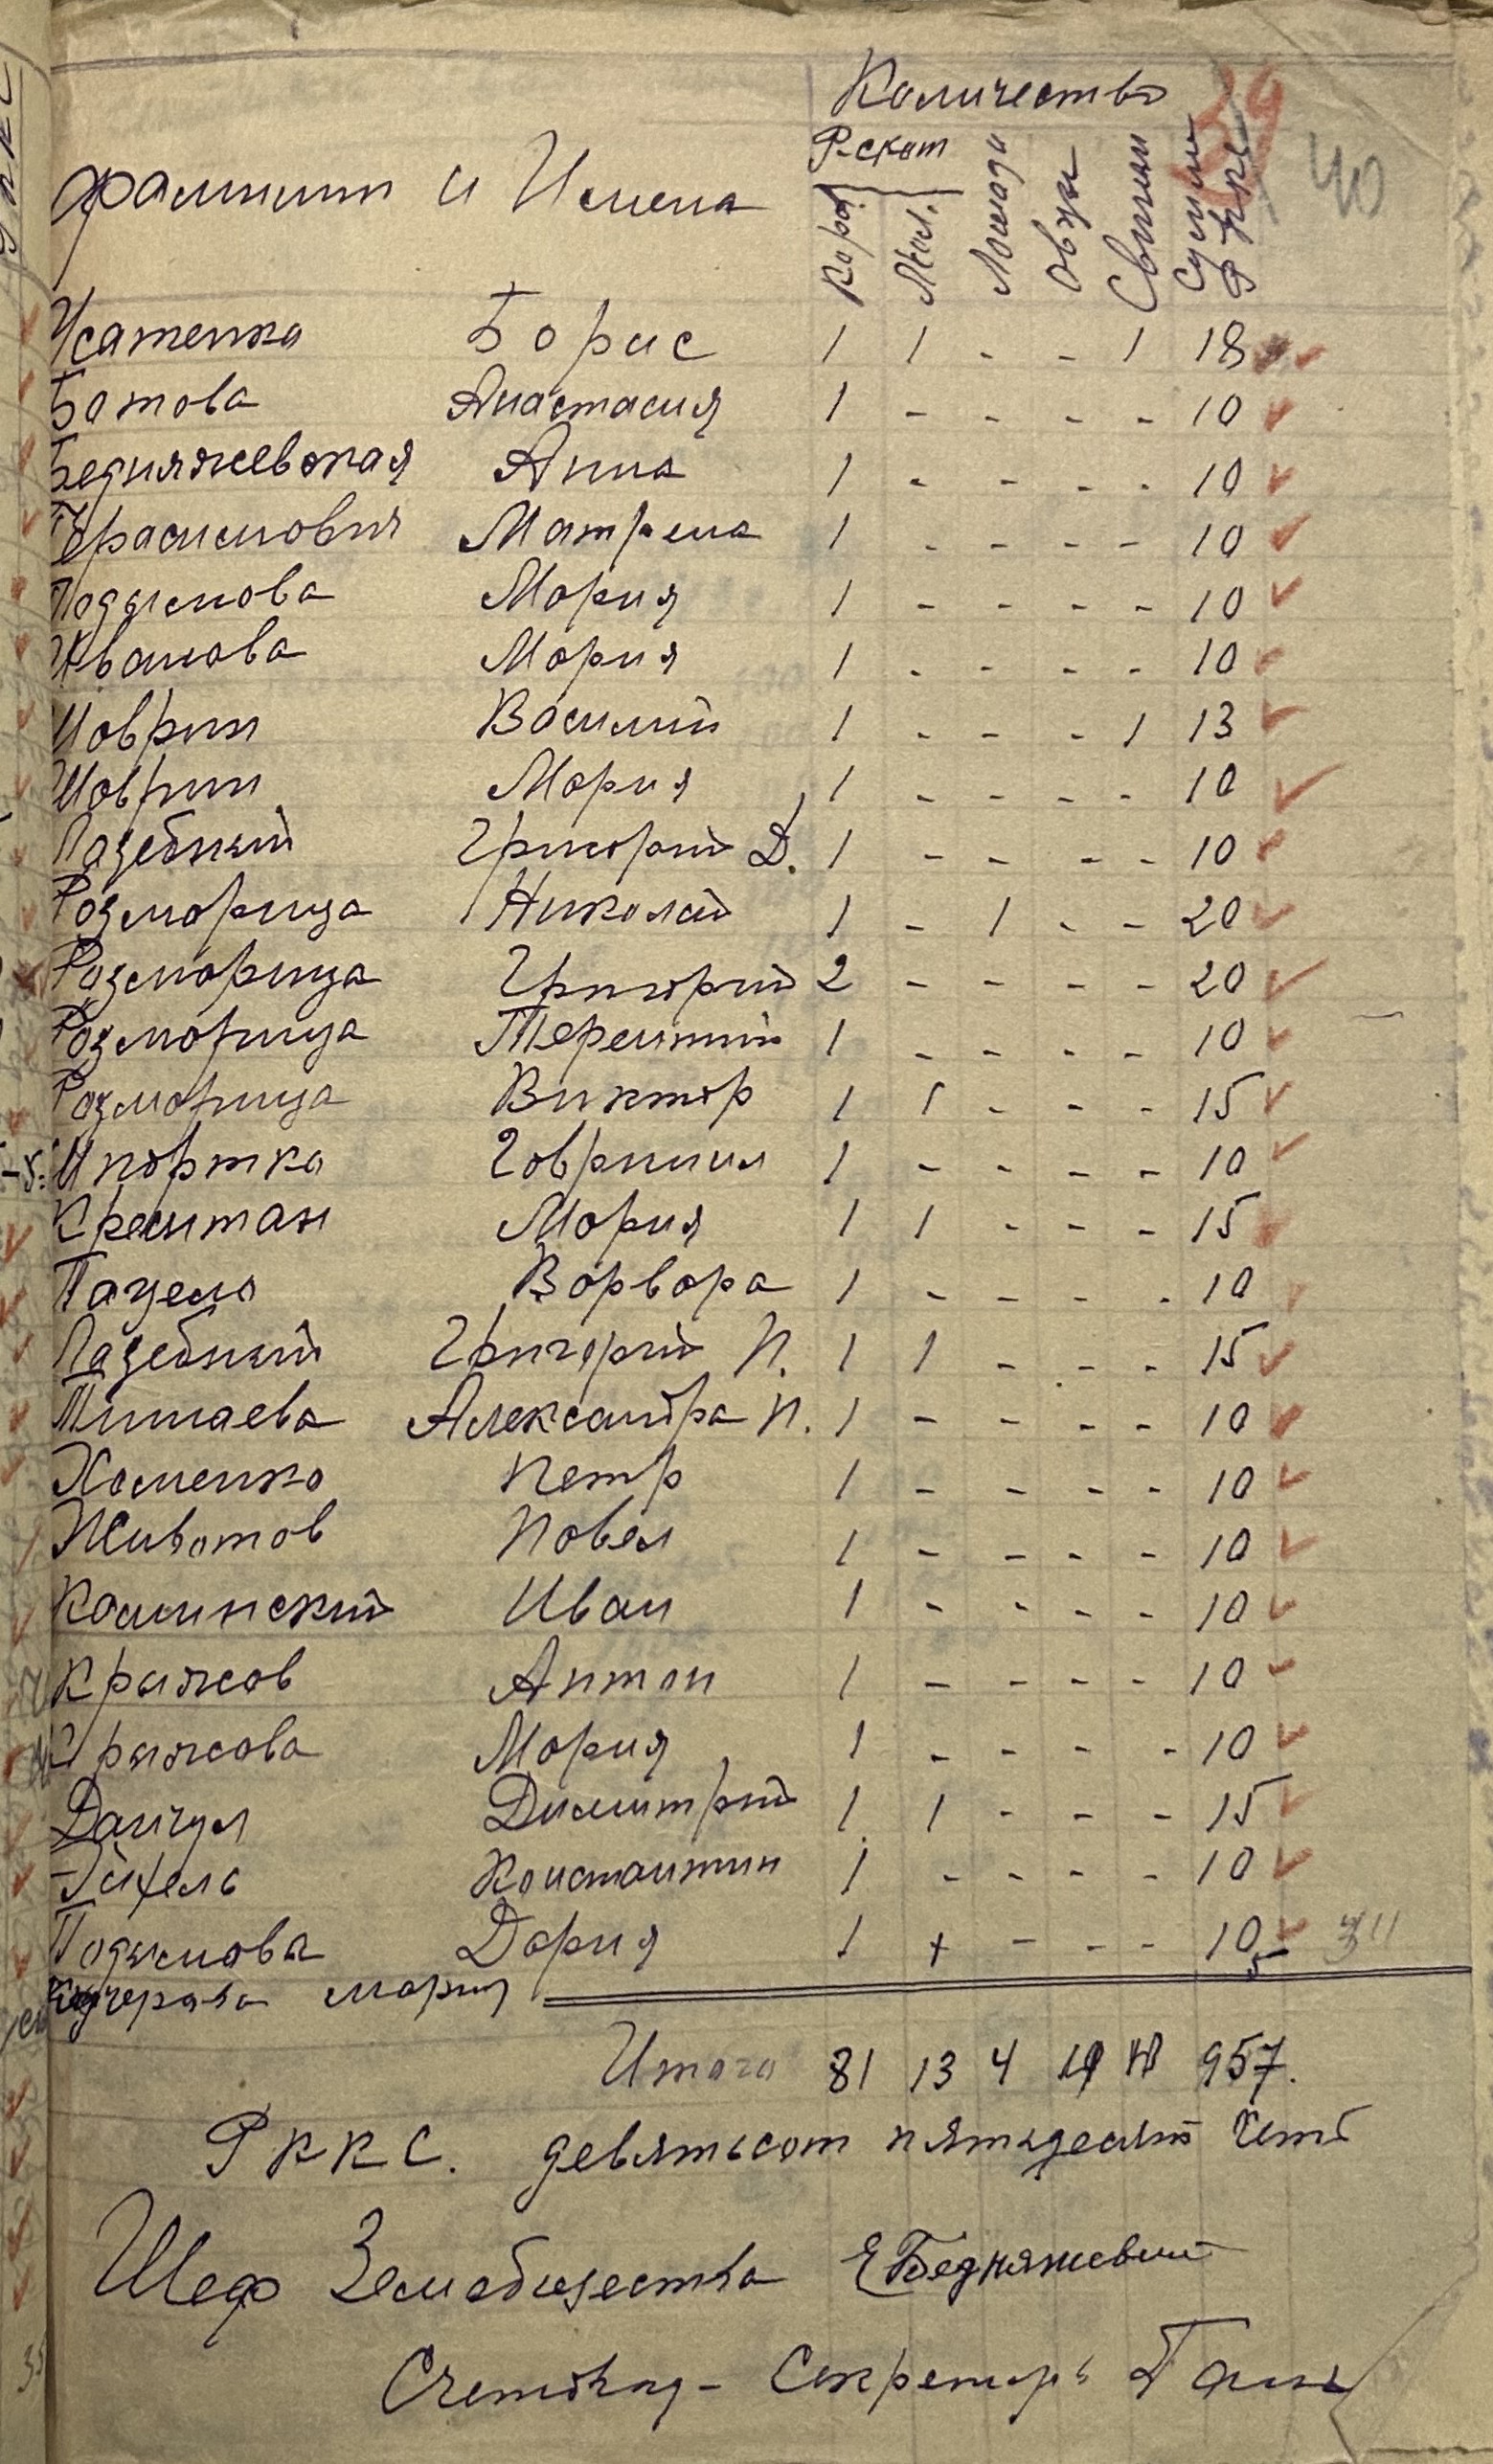 Количество
39
40
Р-скот
Фамилии и Имена
Кор. Мол. Лошади Овцы Свиньи Сумма
Усатенко Борис 1 1 - - 1 18
Ботова Анастасия 1 - - - - 10
Бедняжевская Анна 1 - - - - 10
Герасимович Матрена 1 - - - - 10
Подымова Мария 1 - - - - 10
Иванова Мария 1 - - - - 10
Шаврин Василий 1 - - - 1 13
Шаврин Мария 1 - - - - 10
Лазебный Григорий Д. 1 - - - - 10
Розморица Николай 1 - 1 - - 20
Розморица Григорий 2 - - - - 20
Розморица Терентий 1 - - - - 10
Розморица Виктор 1 1 - - - 15
Шпортка Гавриил 1 - - - - 10
Крейтан Мария 1 1 - - - 15
Пацела Варвара 1 - - - - 10
Лазебный Григорий П. 1 1 - - - 15
Тимаева Александра П. 1 - - - - 10
Хоменко Петр 1 - - - - 10
Животов Павел 1 - - - - 10
Каминский Иван 1 - - - - 10
Крыжов Антон 1 - - - - 10
Крыжова Мария 1 - - - - 10
Данчул Димитрий 1 1 - - - 15
Константин 1 - - - - 10
Подымова Дария 1 + - - - 10
5
Мария
Итого 81 13 4 957.
РККС. девятьсот пятьдесят
Шеф Земобщества Е Бедняжевский
Счетовод - Секретарь